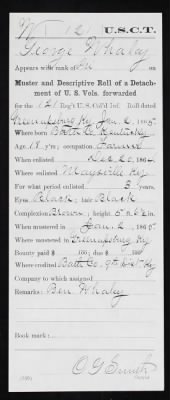 W | 12 | U.S.C.T.
George Whaley
Appears with rank of Pvt on
Muster and Descriptive Roll of a Detach-
ment of U. S. Vols. forwarded
for the 121 Reg't U.S. Col'd Inf. Roll dated
Greensburg Ky Jan 2, 1865
Where born Bath Co Kentucky
Age 18 y'rs; occupation Farmer
When enlisted Dec 20, 1864
Where enlisted Maysville Ky
For what period enlisted 3 years.
Eyes Black; hair Black
Complexion Brown; height 5 ft. in.
When mustered in Jan. 2, 1865
Where mustered in Greensburg Ky
Bounty paid $ 100; due $ 100
Where credited Bath Co. 9th Dist Ky
Company to which assigned
Remarks: Ben Whaley
Book mark:
O G Smith
Copyist